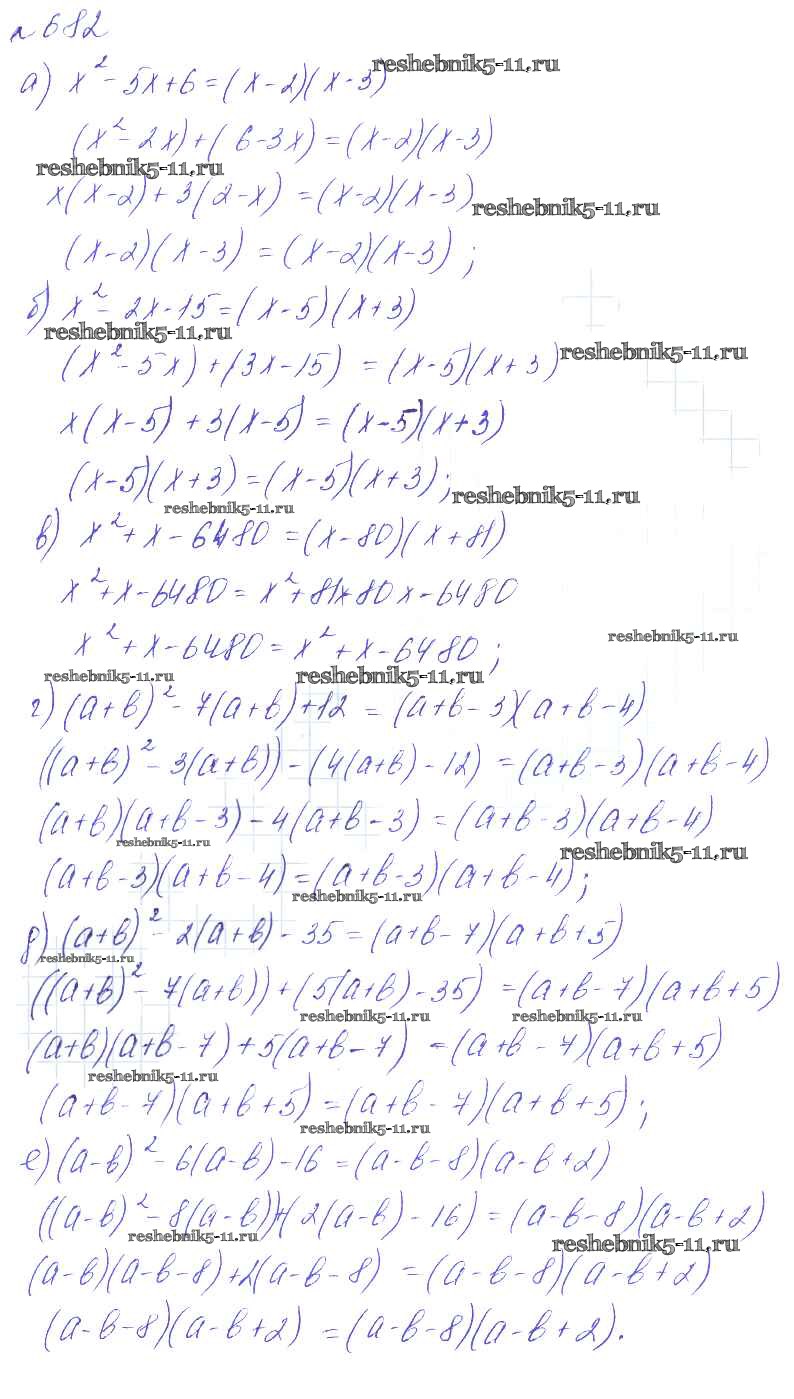 №682
а) x² - 5x + 6 = (x - 2)(x - 3)
reshebnik5-11.ru
(x² - 2x) + (6 - 3x) = (x - 2)(x - 3)
reshebnik5-11.ru
x(x - 2) + 3(2 - x) = (x - 2)(x - 3)
reshebnik5-11.ru
(x - 2)(x - 3) = (x - 2)(x - 3);
б) x² - 2x - 15 = (x - 5)(x + 3)
reshebnik5-11.ru
(x² - 5x) + (3x - 15) = (x - 5)(x + 3)
reshebnik5-11.ru
x(x - 5) + 3(x - 5) = (x - 5)(x + 3)
(x - 5)(x + 3) = (x - 5)(x + 3);
reshebnik5-11.ru
reshebnik5-11.ru
в) x² + x - 6480 = (x - 80)(x + 81)
x² + x - 6480 = x² + 81x - 80x - 6480
x² + x - 6480 = x² + x - 6480;
reshebnik5-11.ru
reshebnik5-11.ru
reshebnik5-11.ru
г) (a + b)² - 7(a + b) + 12 = (a + b - 3)(a + b - 4)
((a + b)² - 3(a + b)) - (4(a + b) - 12) = (a + b - 3)(a + b - 4)
(a + b)(a + b - 3) - 4(a + b - 3) = (a + b - 3)(a + b - 4)
reshebnik5-11.ru
reshebnik5-11.ru
(a + b - 3)(a + b - 4) = (a + b - 3)(a + b - 4);
reshebnik5-11.ru
д) (a + b)² - 2(a + b) - 35 = (a + b - 7)(a + b + 5)
reshebnik5-11.ru
((a + b)² - 7(a + b)) + (5(a + b) - 35) = (a + b - 7)(a + b + 5)
reshebnik5-11.ru
reshebnik5-11.ru
(a + b)(a + b - 7) + 5(a + b - 7) = (a + b - 7)(a + b + 5)
reshebnik5-11.ru
(a + b - 7)(a + b + 5) = (a + b - 7)(a + b + 5);
reshebnik5-11.ru
е) (a - b)² - 6(a - b) - 16 = (a - b - 8)(a - b + 2)
((a - b)² - 8(a - b)) + (2(a - b) - 16) = (a - b - 8)(a - b + 2)
reshebnik5-11.ru
reshebnik5-11.ru
(a - b)(a - b - 8) + 2(a - b - 8) = (a - b - 8)(a - b + 2)
(a - b - 8)(a - b + 2) = (a - b - 8)(a - b + 2).